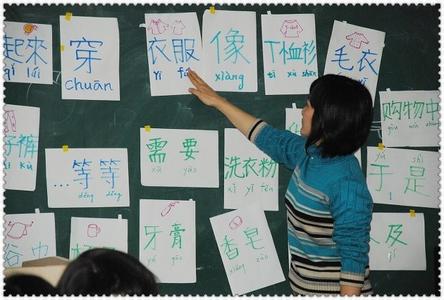 起來
qǐ lái
穿
chuān
衣服
yī fú
像
xiàng
T恤衫
tì xù shān
毛衣
购物中
gòu wù zhōng
裤
kù
...等等
děng děng
需要
xū yào
洗衣粉
xǐ yī fěn
于是
yú shì
浴巾
牙膏
yá gāo
香皂
xiāng zào
及
jí